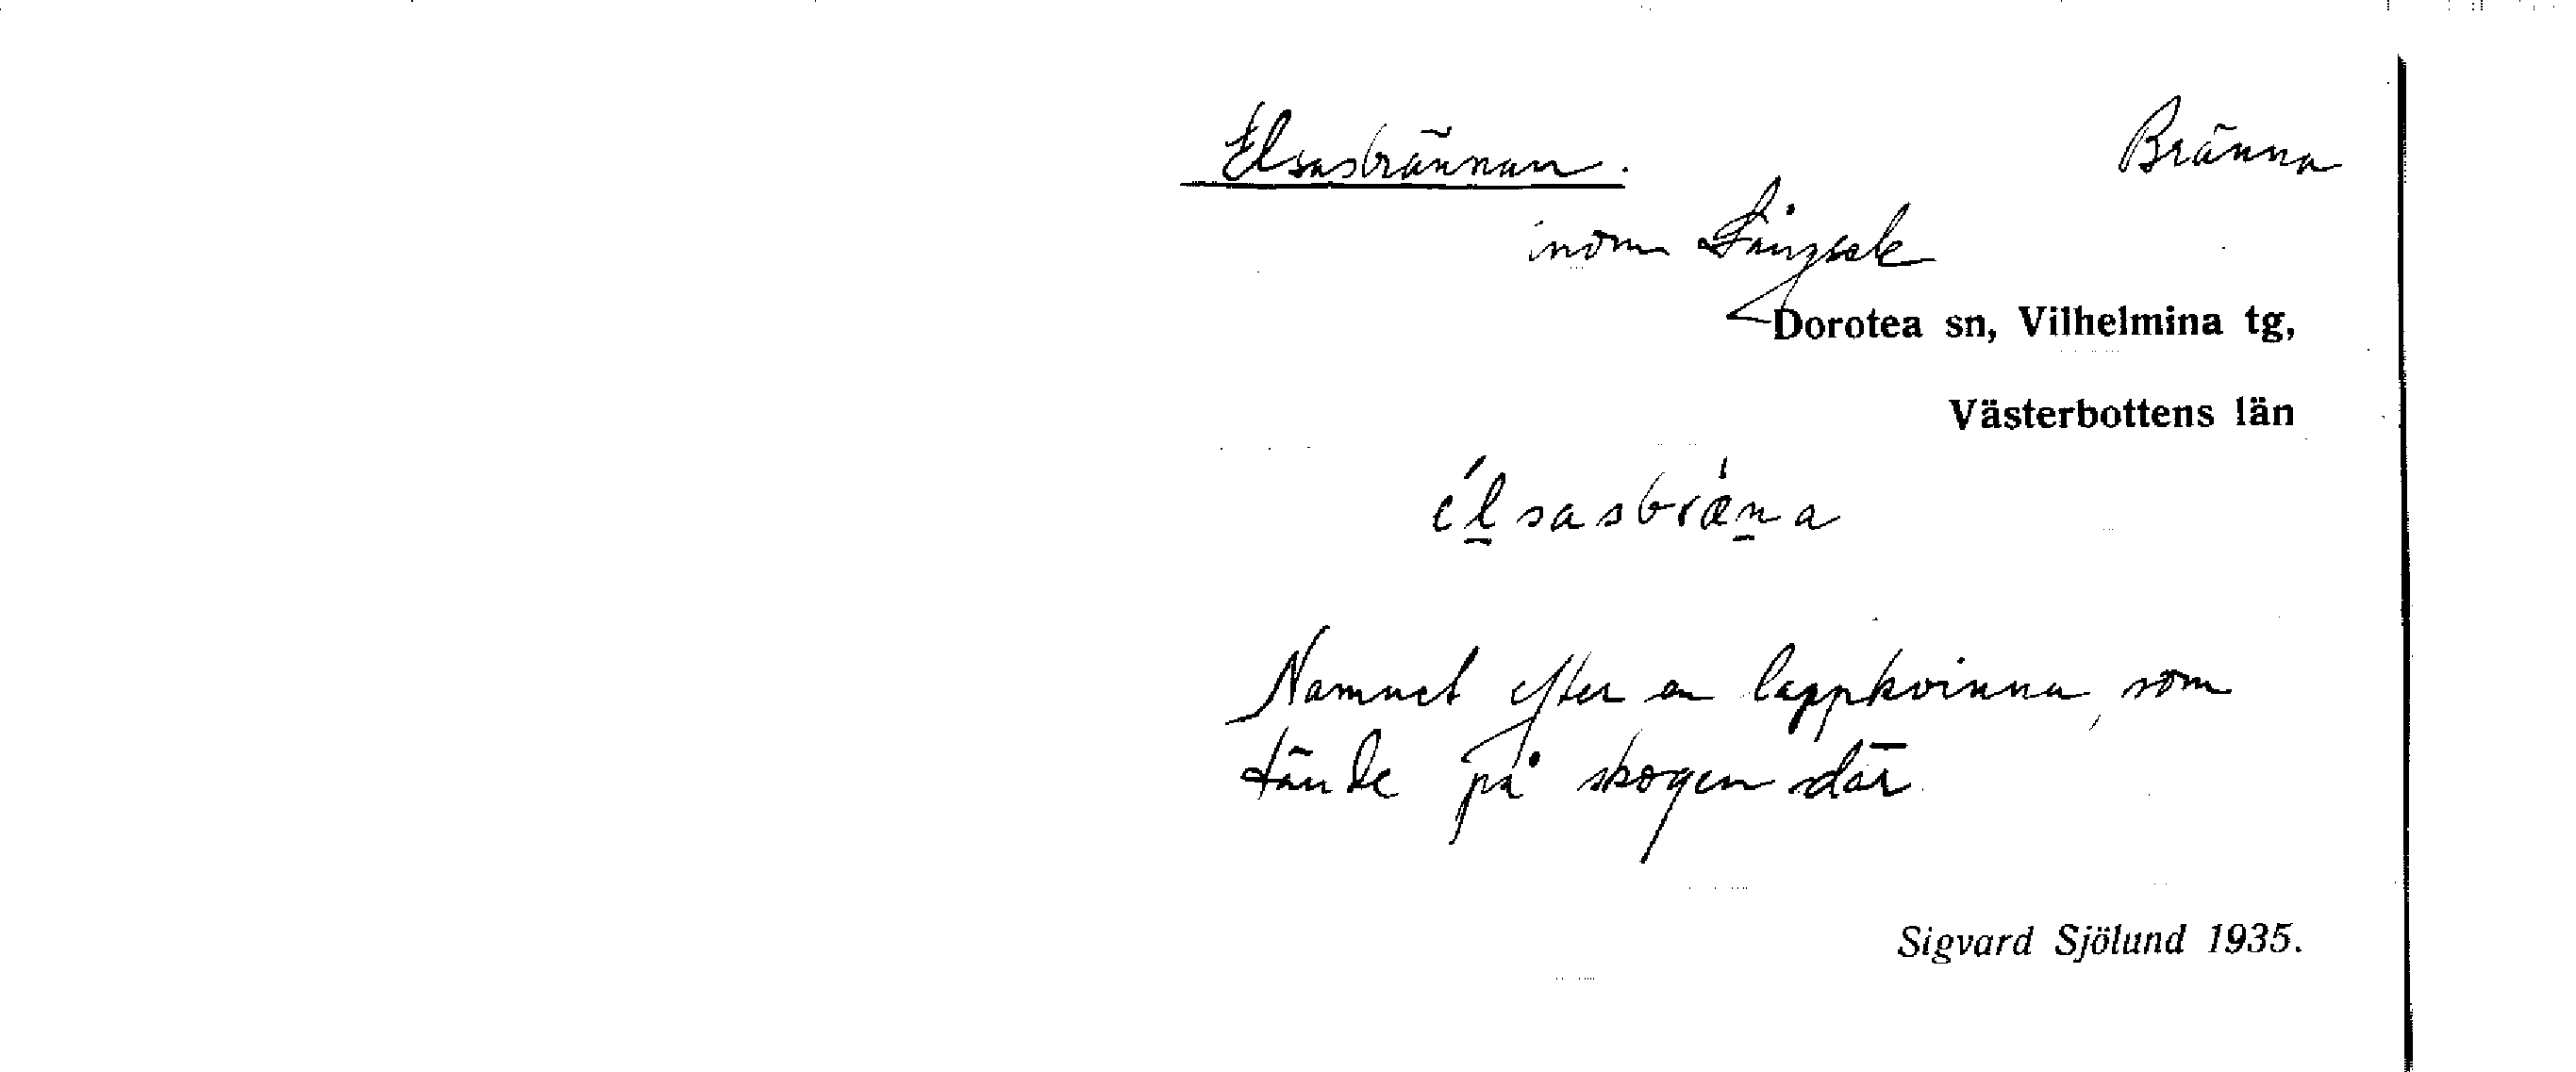 Elsasbrännan. Bränna
inom Långsele
Dorotea sn, Vilhelmina tg,
Västerbottens län
élsasbræ̀na
Namnet efter en lappkvinna, som
tände på skogen där.
Sigvard Sjölund 1935.